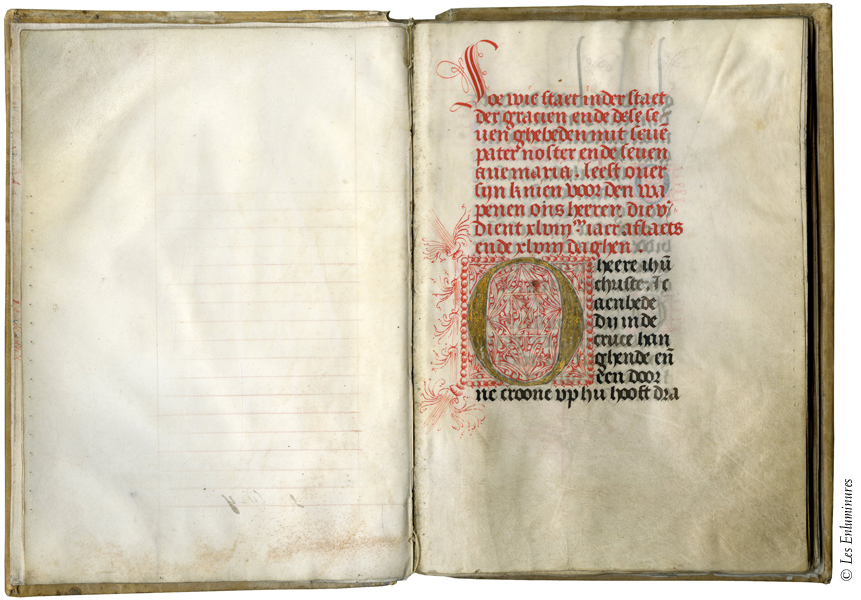 Soe wie staet in der staet
der gracien ende dese se
uen ghebeden mit seuē
pater noster ende seuen
aue maria. leest ouer
sijn knien voor den wa
penen ons herren die v̄
dient xlvi iaer aflaets
ende xlvi daghen
O heere ihū
christe. Ic
aenbede
dij in de
cruce han
ghende eñ
een door
ne croone vp hu hooft dra
© Les Enluminures